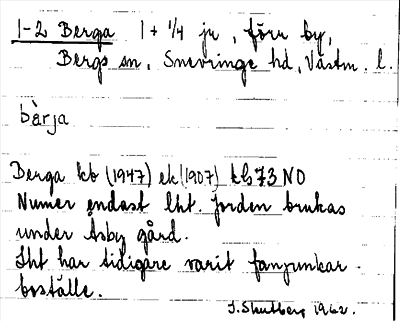 1-2 Berga 1 + 1/4 jr, förr by,
Bergs sn, Snevringe hd, Västm. l.
bàrja
Berga kb (1947) ek (1907) tb 73 NO
Numer endast lht. jorden brukas
under Åsby gård.
Lht har tidigare varit fanjunkar-
boställe.
1962.